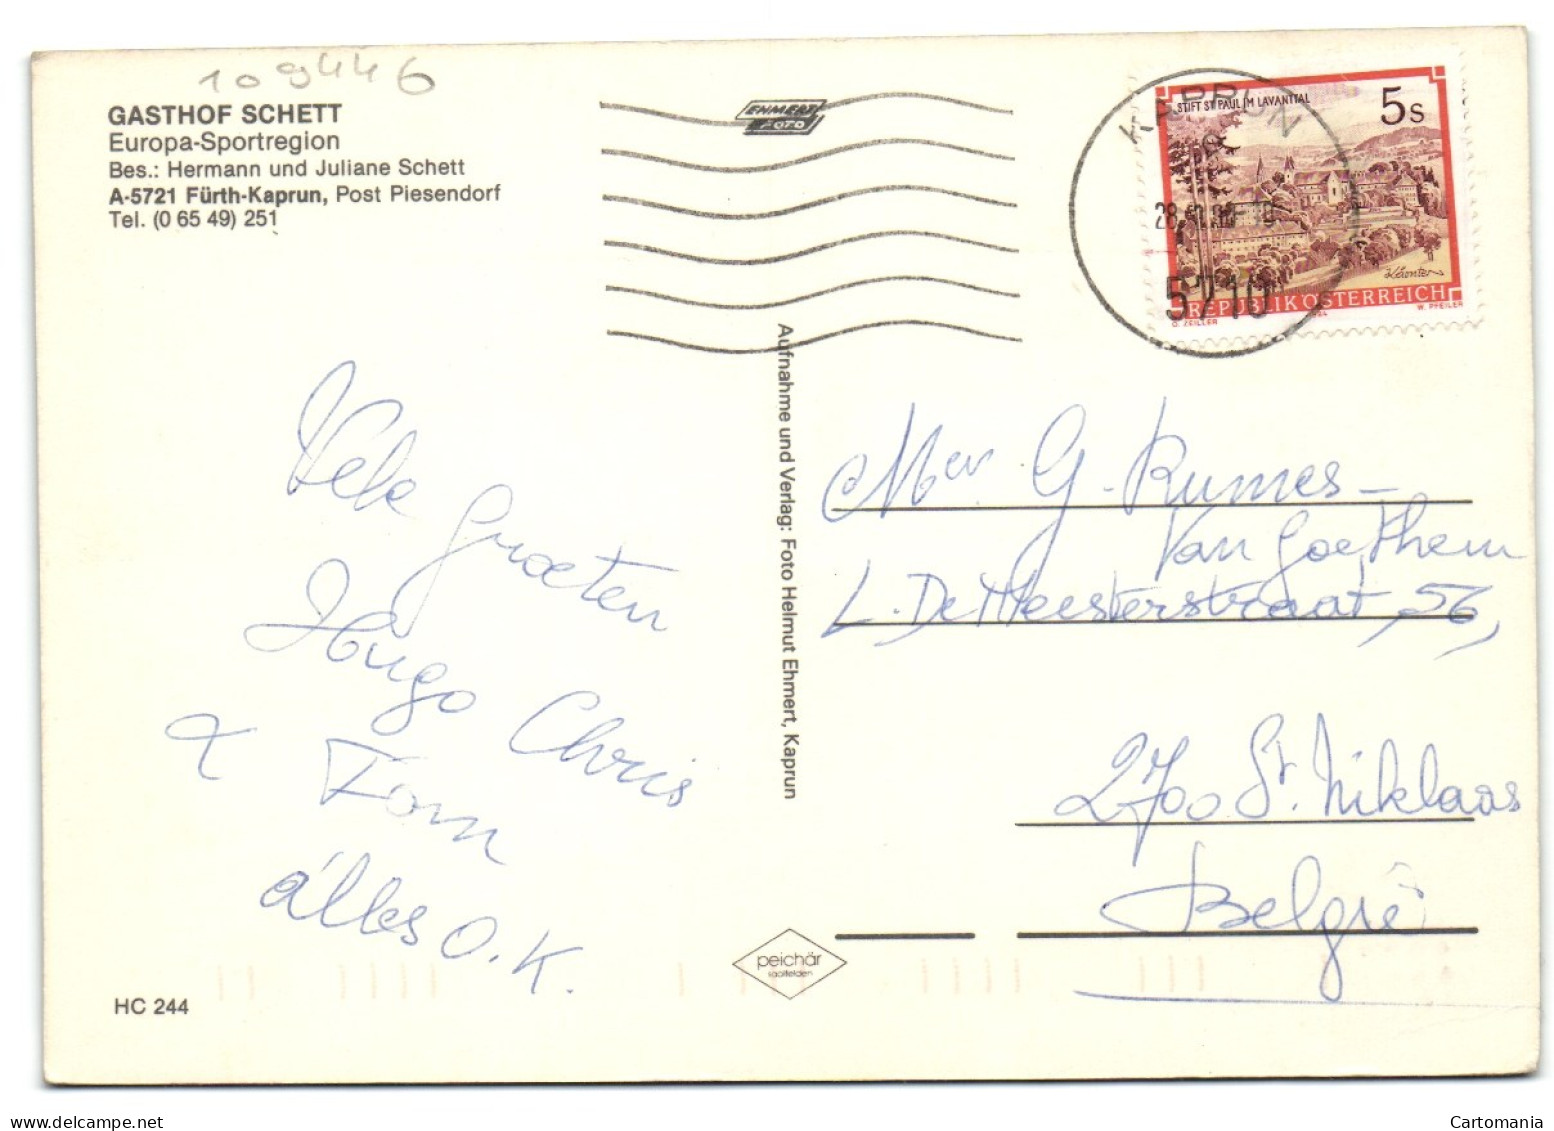 109446
GASTHOF SCHETT
Europa-Sportregion
Bes.: Hermann und Juliane Schett
A-5721 Fürth-Kaprun, Post Piesendorf
Tel. (0 65 49) 251
EHMERT
FOTO
KAPRUN
5710
STIFT ST PAUL IM LAVANTTAL
5s
REPUBLIK ÖSTERREICH
O. ZEILER
W. PFEILER
Vele Groeten
Hugo Chris
& Tom
alles O.K.
Aufnahme und Verlag: Foto Helmut Ehmert, Kaprun
Mevr G. Rumes-
Van Goethem
L. De Meesterstraat, 56,
2700 St. Niklaas
België
peichär
saalfelden
HC 244
delcampe.net
Cartomania